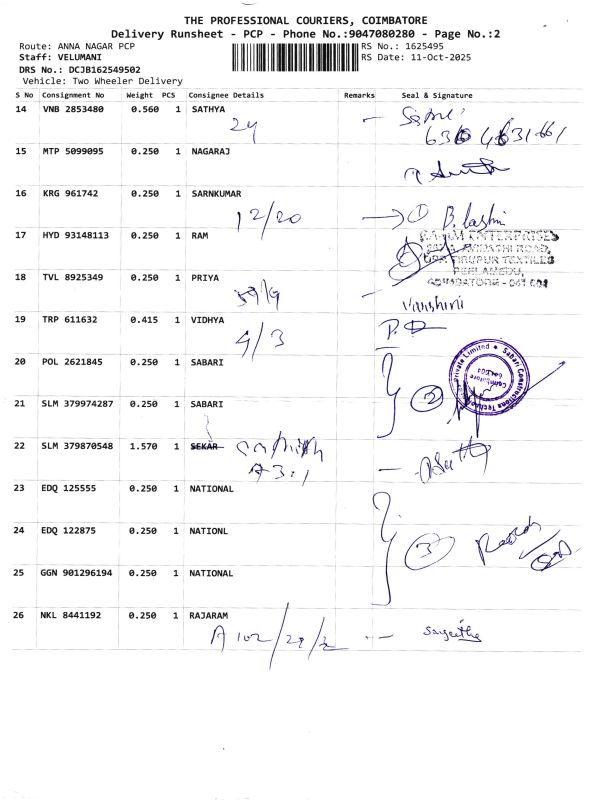 THE PROFESSIONAL COURIERS, COIMBATORE
Delivery Runsheet - PCP - Phone No.:9047080280 - Page No.:2
Route: ANNA NAGAR PCP RS No.: 1625495
Staff: VELUMANI RS Date: 11-Oct-2025
DRS No.: DCJB162549502
Vehicle: Two Wheeler Delivery
S No Consignment No Weight PCS Consignee Details Remarks Seal & Signature
14 VNB 2853480 0.560 1 SATHYA
24
15 MTP 5099095 0.250 1 NAGARAJ
16 KRG 961742 0.250 1 SARNKUMAR
12/20 1
17 HYD 93148113 0.250 1 RAM
ENTERPRISES
TIRUPUR TEXTILES
PEELAMEDU,
COIMBATORE - 641 004
18 TVL 8925349 0.250 1 PRIYA
Varshini
19 TRP 611632 0.415 1 VIDHYA
4/3
20 POL 2621845 0.250 1 SABARI
Sabari Constructions Private Limited
Coimbatore
21 SLM 379974287 0.250 1 SABARI
2
22 SLM 379870548 1.570 1 SEKAR
23 EDQ 125555 0.250 1 NATIONAL
24 EDQ 122875 0.250 1 NATIONL
3
25 GGN 901296194 0.250 1 NATIONAL
26 NKL 8441192 0.250 1 RAJARAM
A 102/29/2